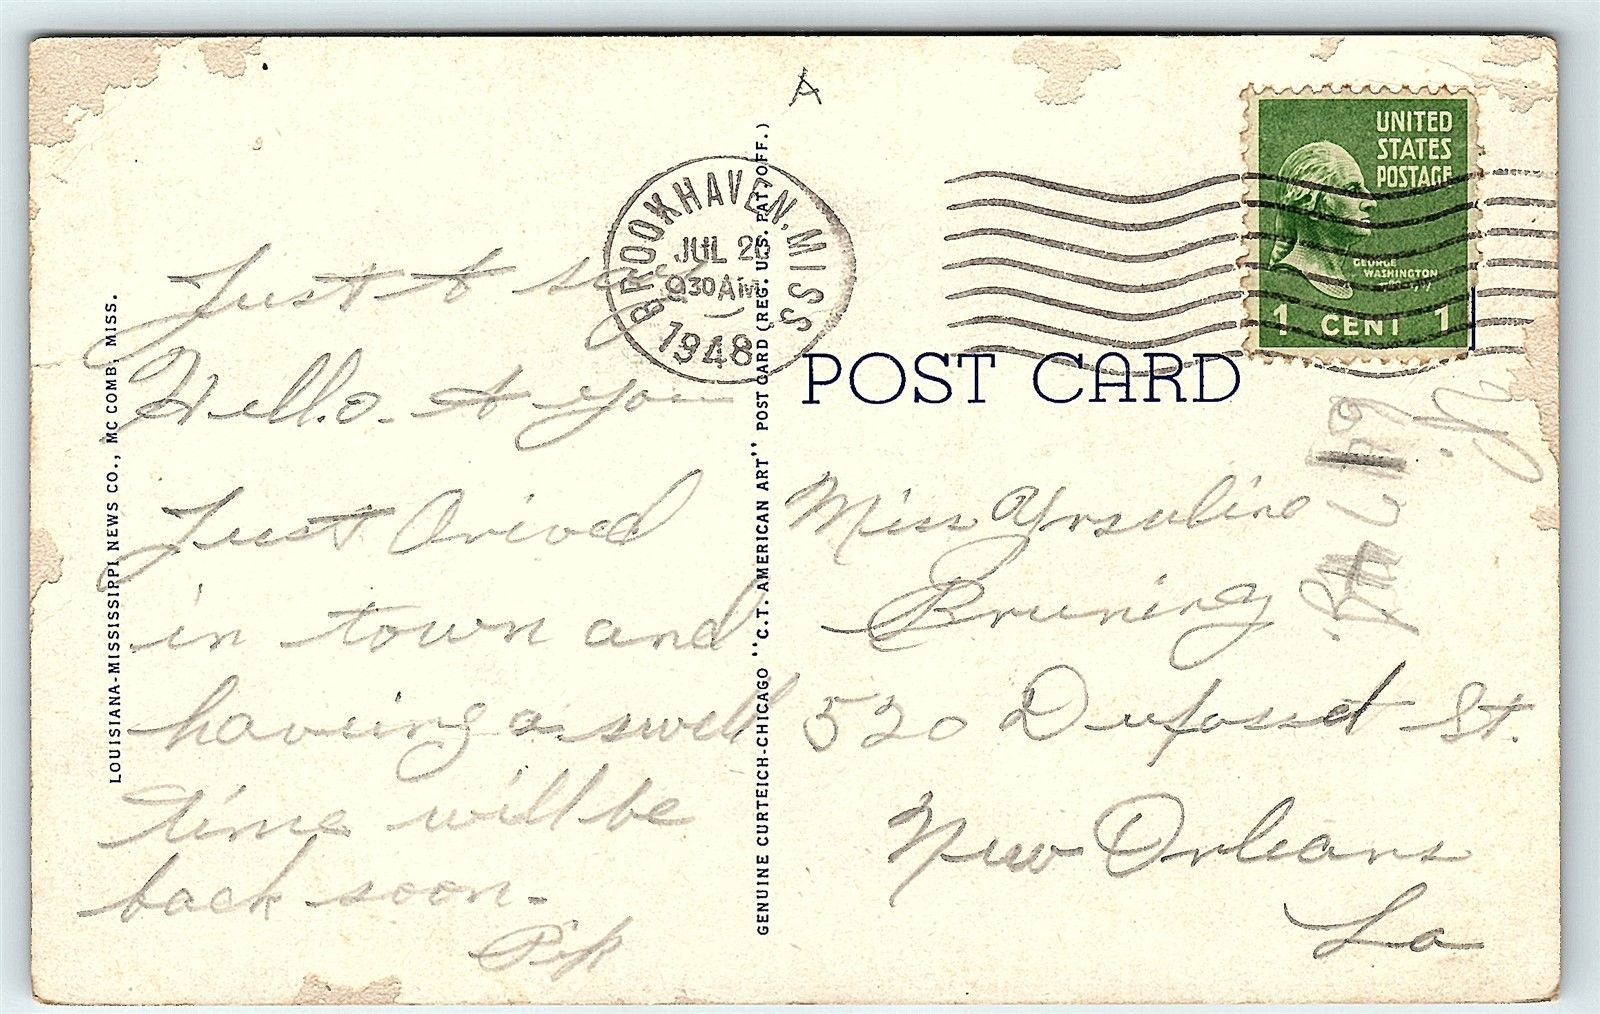 A
BROOKHAVEN, MISS
JUL 26
930 AM
1948
UNITED
STATES
POSTAGE
GEORGE
WASHINGTON
1 CENT 1
POST CARD
LOUISIANA-MISSISSIPPI NEWS CO., MC COMB, MISS.
GENUINE CURTEICH-CHICAGO "C.T. AMERICAN ART" POST CARD (REG. U.S. PAT. OFF.)
Just to say
Hello. to you
Just Arived
in town and
having a swell
time will be
back soon-
Miss Yrsuline
Bruning
520 Dufosset St.
New Orleans
La